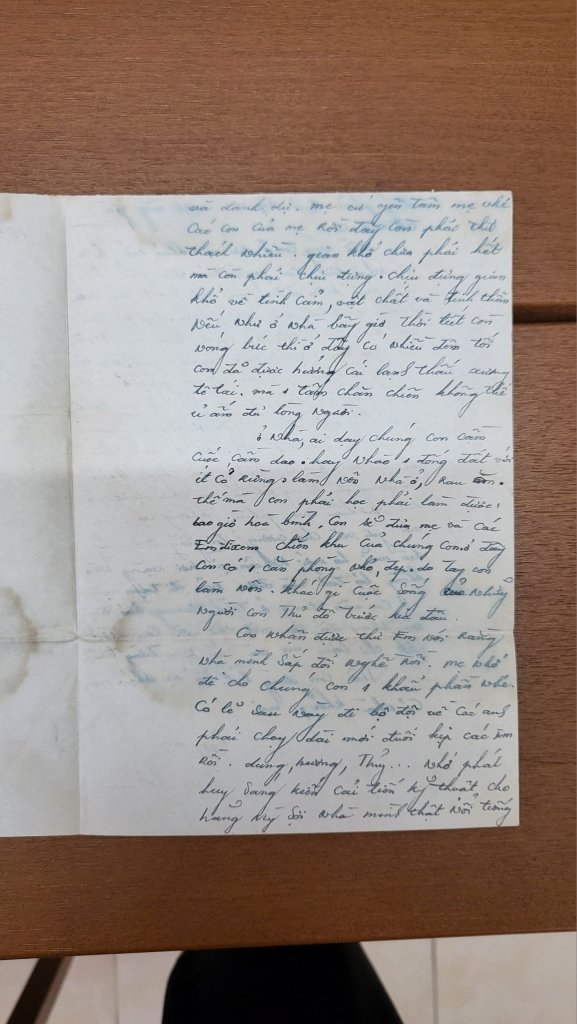 và danh dự. mẹ cứ yên tâm mẹ nhé
Các con của mẹ rồi đây còn phải thử
thách nhiều. gian khổ chưa phải hết
mà còn phải chịu đựng. Chịu đựng gian
khổ về tình cảm, vật chất và tinh thần
Nếu như ở nhà bây giờ thời tiết còn
nóng bức thì ở đây có nhiều đêm tối
con đã được hưởng cái lạnh thấu xương
tê tái. mà 1 tấm chăn chiên không thể
ủ ấm đủ lòng người.
ở nhà, ai dạy chúng con cầm
cuốc cầm dao. hay nhào 1 đống đất với
ít cỏ làm nên nhà ở, rau ăn.
thế mà con phải học phải làm được,
bao giờ hoà bình, con sẽ đưa mẹ và các
Em đi xem chiến khu của chúng con ở đây
con có 1 căn phòng nhỏ, đẹp. do tay con
làm nên. khác gì cuộc sống của những
người con Thủ đô trước kia đâu.
Con nhận được thư Em nói rằng
nhà mình sắp đổi nghề rồi. mẹ nhớ
để cho chúng con 1 khẩu phần nhé.
Có lẽ sau này đi bộ đội về các anh
phải chạy dài mới đuổi kịp các em
rồi. dung, hương, Thuỷ... nhớ phát
huy sáng kiến cải tiến kỹ thuật cho
hãng sợi nhà mình thật nổi tiếng